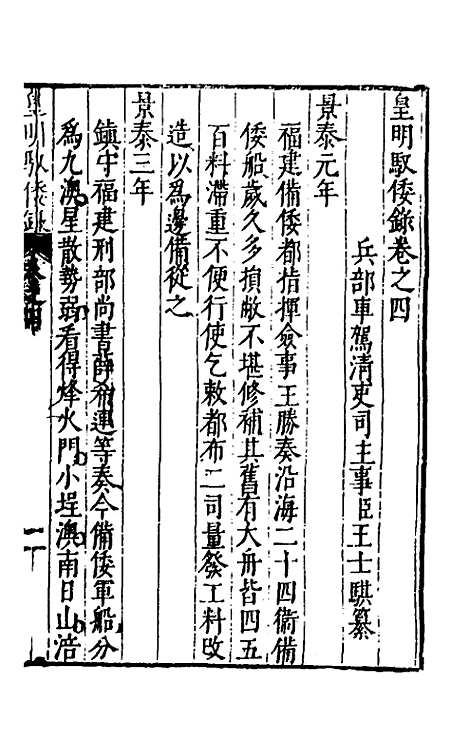 皇明馭倭錄卷之四
兵部車駕清吏司主事臣王士騏纂
景泰元年
福建備倭都指揮僉事王勝奏沿海二十四衞備
倭船歲久多損敝不堪修補其舊有大舟皆四五
百料滯重不便行使乞敕都布二司量發工料改
造以爲邊備從之
景泰三年
鎮守福建刑部尚書薛希璉等奏今備倭軍船分
爲九澳星散勢弱看得烽火門小埕澳南日山浯
皇明馭倭錄